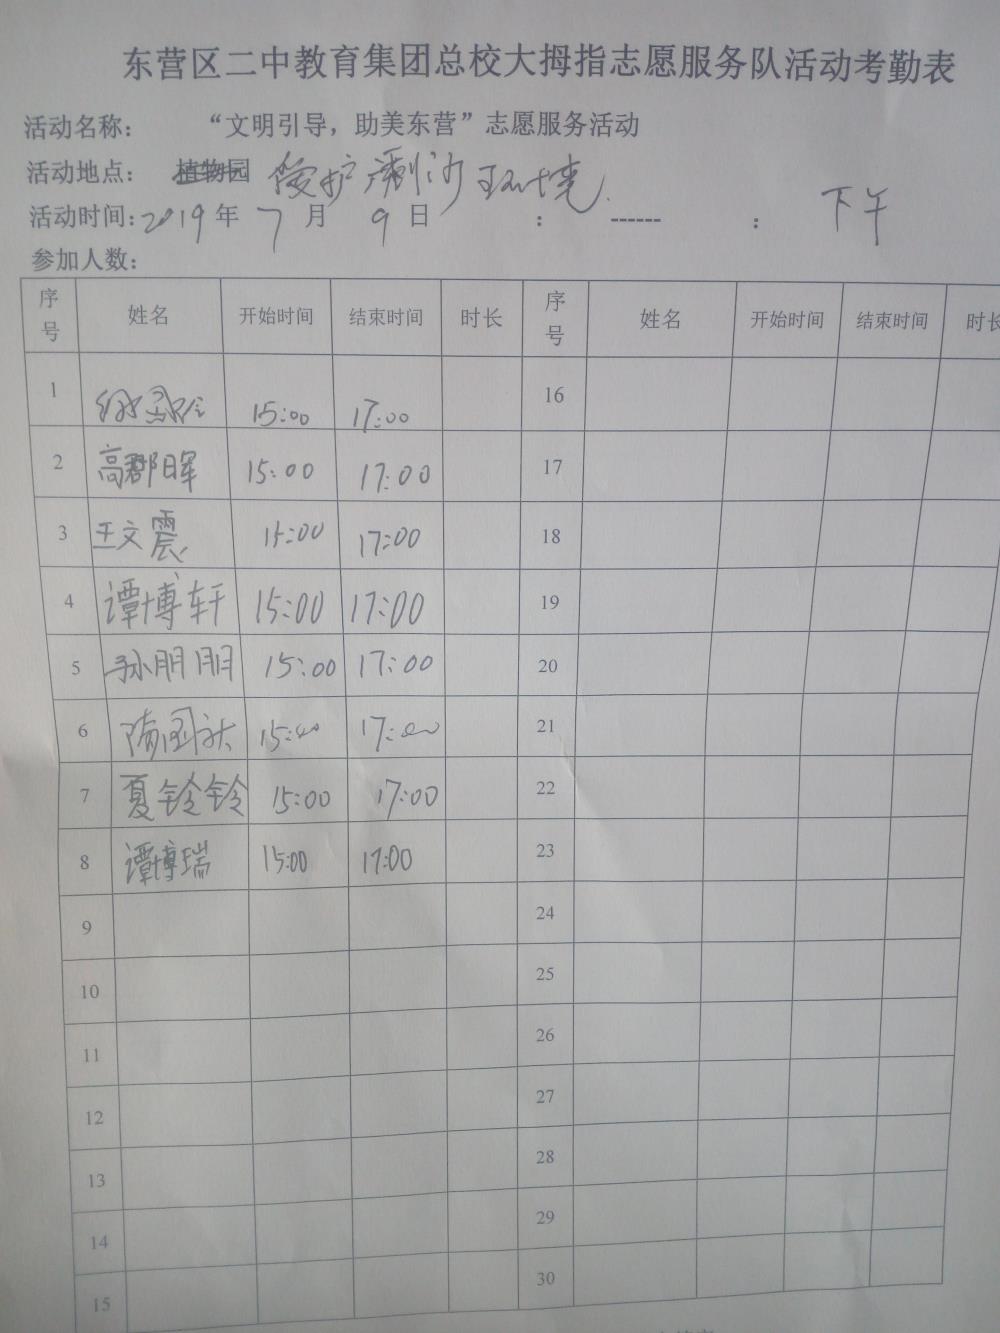 东营区二中教育集团总校大拇指志愿服务队活动考勤表
活动名称： “文明引导，助美东营”志愿服务活动
活动地点： 植物园 爱护 环境
活动时间：2019年 7 月 9 日 ： ------ ： 下午
参加人数：
序号 姓名 开始时间 结束时间 时长 序号 姓名 开始时间 结束时间 时长
1 15:00 17:00 16
2 高郡晖 15:00 17:00 17
3 王文震 15:00 17:00 18
4 谭博轩 15:00 17:00 19
5 孙朋朋 15:00 17:00 20
6 15:00 17:00 21
7 夏铃铃 15:00 17:00 22
8 谭博瑞 15:00 17:00 23
9 24
10 25
11 26
12 27
13 28
14 29
15 30